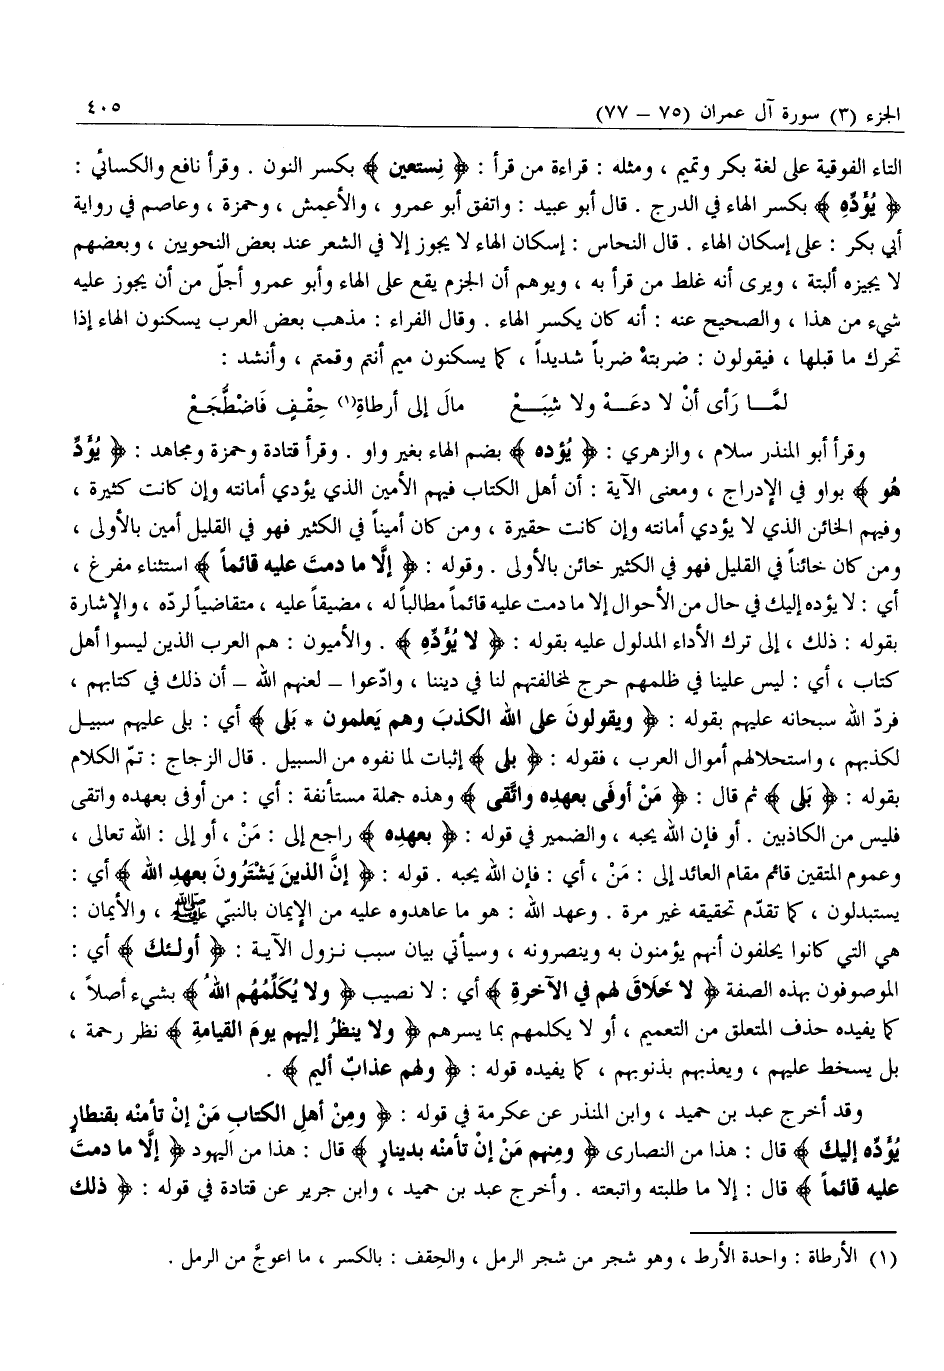 الجزء (٣) سورة آل عمران (٧٥ – ٧٧) ٤٠٥
التاء الفوقية على لغة بكر وتميم ، ومثله : قراءة من قرأ : ﴿ نِستعين ﴾ بكسر النون . وقرأ نافع والكسائي :
﴿ يُؤَدِّهِ ﴾ بكسر الهاء في الدرج . قال أبو عبيد : واتفق أبو عمرو ، والأعمش ، وحمزة ، وعاصم في رواية
أبي بكر : على إسكان الهاء . قال النحاس : إسكان الهاء لا يجوز إلا في الشعر عند بعض النحويين ، وبعضهم
لا يجيزه ألبتة ، ويرى أنه غلط من قرأ به ، ويوهم أن الجزم يقع على الهاء وأبو عمرو أجلّ من أن يجوز عليه
شيء من هذا ، والصحيح عنه : أنه كان يكسر الهاء . وقال الفراء : مذهب بعض العرب يسكنون الهاء إذا
تحرك ما قبلها ، فيقولون : ضربتهْ ضرباً شديداً ، كما يسكنون ميم أنتم وقمتم ، وأنشد :
لمَّـا رَأى أنْ لا دعَـهْ ولا شِبَـعْ مالَ إلى أرطاةِ(١) حِقْـفٍ فَاضْطَّجَـعْ
وقرأ أبو المنذر سلام ، والزهري : ﴿ يُؤده ﴾ بضم الهاء بغير واو . وقرأ قتادة وحمزة ومجاهد : ﴿ يُؤَدِّ
هُو ﴾ بواو في الإدراج ، ومعنى الآية : أن أهل الكتاب فيهم الأمين الذي يؤدي أمانته وإن كانت كثيرة ،
وفيهم الخائن الذي لا يؤدي أمانته وإن كانت حقيرة ، ومن كان أميناً في الكثير فهو في القليل أمين بالأولى ،
ومن كان خائناً في القليل فهو في الكثير خائن بالأولى . وقوله : ﴿ إلَّا ما دمتَ عليه قائماً ﴾ استثناء مفرغ ،
أي : لا يؤده إليك في حال من الأحوال إلا ما دمت عليه قائماً مطالباً له ، مضيقاً عليه ، متقاضياً لردّه ، والإشارة
بقوله : ذلك ، إلى ترك الأداء المدلول عليه بقوله : ﴿ لا يُؤَدِّهِ ﴾ . والأميون : هم العرب الذين ليسوا أهل
كتاب ، أي : ليس علينا في ظلمهم حرج لمخالفتهم لنا في ديننا ، وادّعوا – لعنهم الله – أن ذلك في كتابهم ،
فردّ الله سبحانه عليهم بقوله : ﴿ ويقولونَ على الله الكذبَ وهم يَعلمون * بَلى ﴾ أي : بلى عليهم سبيل
لكذبهم ، واستحلالهم أموال العرب ، فقوله : ﴿ بلى ﴾ إثبات لما نفوه من السبيل . قال الزجاج : تمّ الكلام
بقوله : ﴿ بَلى ﴾ ثم قال : ﴿ مَنْ أوفَى بعهدِه واتَّقى ﴾ وهذه جملة مستأنفة : أي : من أوفى بعهده واتقى
فليس من الكاذبين . أو فإن الله يحبه ، والضمير في قوله : ﴿ بعهدِه ﴾ راجع إلى : مَنْ ، أو إلى : الله تعالى ،
وعموم المتقين قائم مقام العائد إلى : مَنْ ، أي : فإن الله يحبه . قوله : ﴿ إنَّ الذينَ يَشْتَرُونَ بعهدِ الله ﴾ أي :
يستبدلون ، كما تقدّم تحقيقه غير مرة . وعهد الله : هو ما عاهدوه عليه من الإيمان بالنبيّ ﷺ ، والأيمان :
هي التي كانوا يحلفون أنهم يؤمنون به وينصرونه ، وسيأتي بيان سبب نـزول الآيـة : ﴿ أولـئك ﴾ أي :
الموصوفون بهذه الصفة ﴿ لا خَلَاقَ لهم في الآخرةِ ﴾ أي : لا نصيب ﴿ ولا يُكَلِّمُهُم اللهُ ﴾ بشيء أصلاً ،
كما يفيده حذف المتعلق من التعميم ، أو لا يكلمهم بما يسرهم ﴿ ولا ينظرُ إليهم يومَ القيامةِ ﴾ نظر رحمة ،
بل يسخط عليهم ، ويعذبهم بذنوبهم ، كما يفيده قوله : ﴿ ولهم عذابٌ أليم ﴾ .
وقد أخرج عبد بن حميد ، وابن المنذر عن عكرمة في قوله : ﴿ ومِنْ أهلِ الكتابِ مَنْ إنْ تأمنْه بقنطارٍ
يُؤَدِّه إليكَ ﴾ قال : هذا من النصارى ﴿ ومِنهم مَنْ إنْ تأمنْه بدينارٍ ﴾ قال : هذا من اليهود ﴿ إلَّا ما دمتَ
عليه قائماً ﴾ قال : إلا ما طلبته واتبعته . وأخرج عبد بن حميد ، وابن جرير عن قتادة في قوله : ﴿ ذلك
(١) الأرطاة : واحدة الأرط ، وهو شجر من شجر الرمل ، والحِقف : بالكسر ، ما اعوجَّ من الرمل .